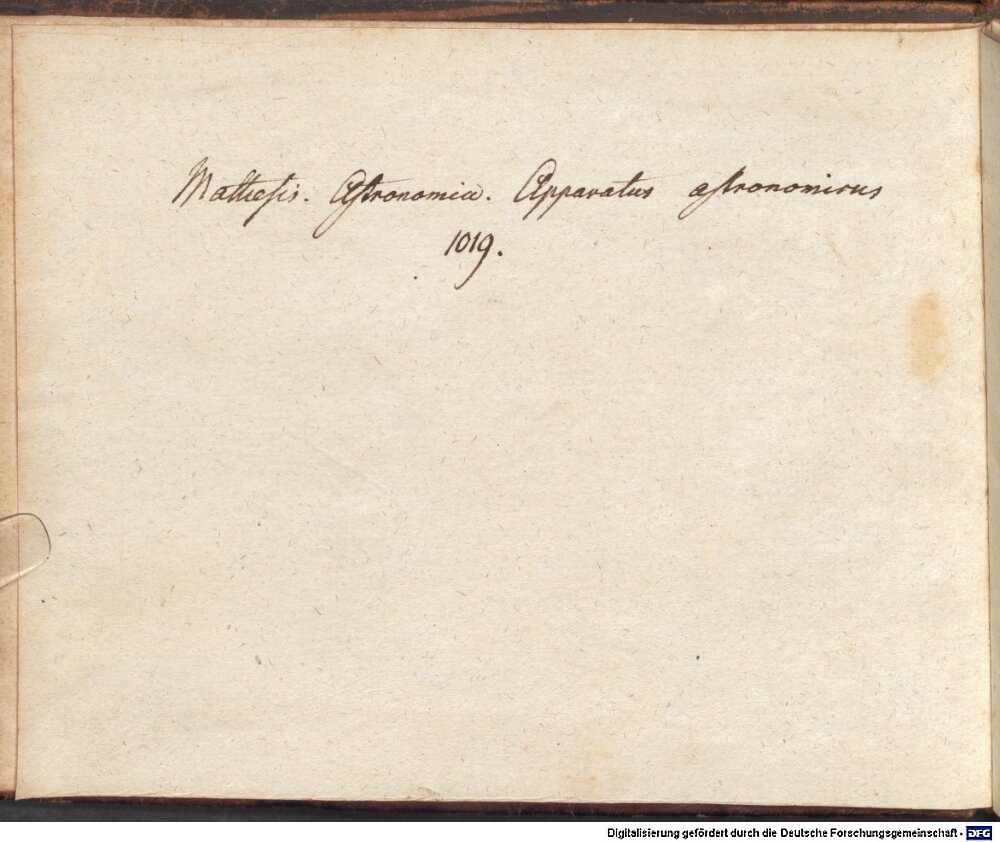 Mathesis. Astronomia. Apparatus astronomicus
1019.
Digitalisierung gefördert durch die Deutsche Forschungsgemeinschaft - DFG